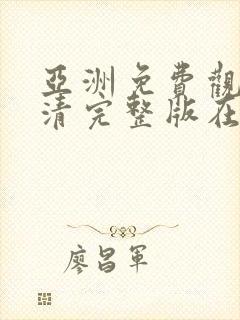 亞洲免費觀
清完整版在
廖昌軍